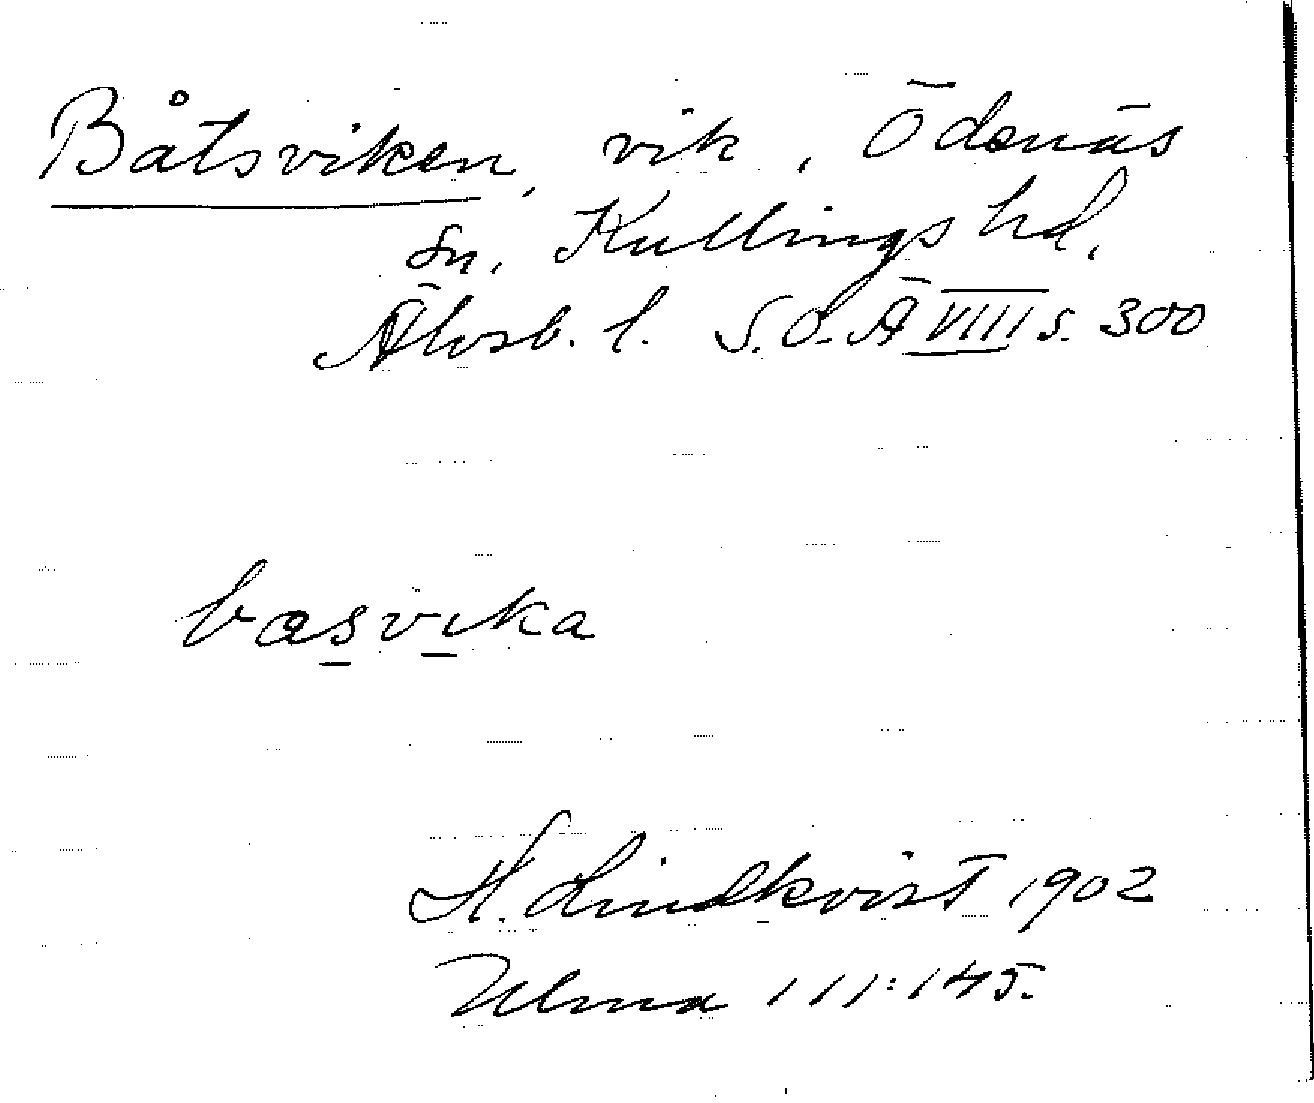 Båtsviken, vik, Ödenäs
sn, Kullings hd,
Älvsb. l. S.O.Ä VIII s. 300
basvika
H. Lindkvist 1902
Ulma 111:145.